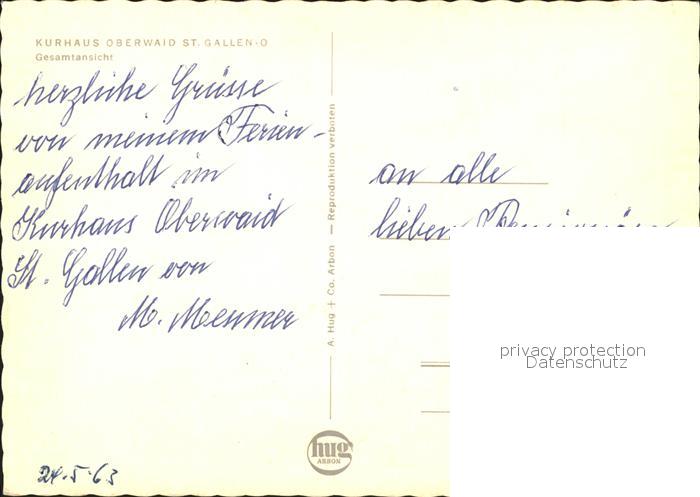 KURHAUS OBERWAID ST. GALLEN-O
Gesamtansicht
herzliche Grüsse
von meinem Ferien-
aufenthalt im
Kurhaus Oberwaid
St. Gallen von
M. Menmer
A. Hug + Co. Arbon — Reproduktion verboten
an alle
lieben
privacy protection
Datenschutz
hug
ARBON
24.5.63